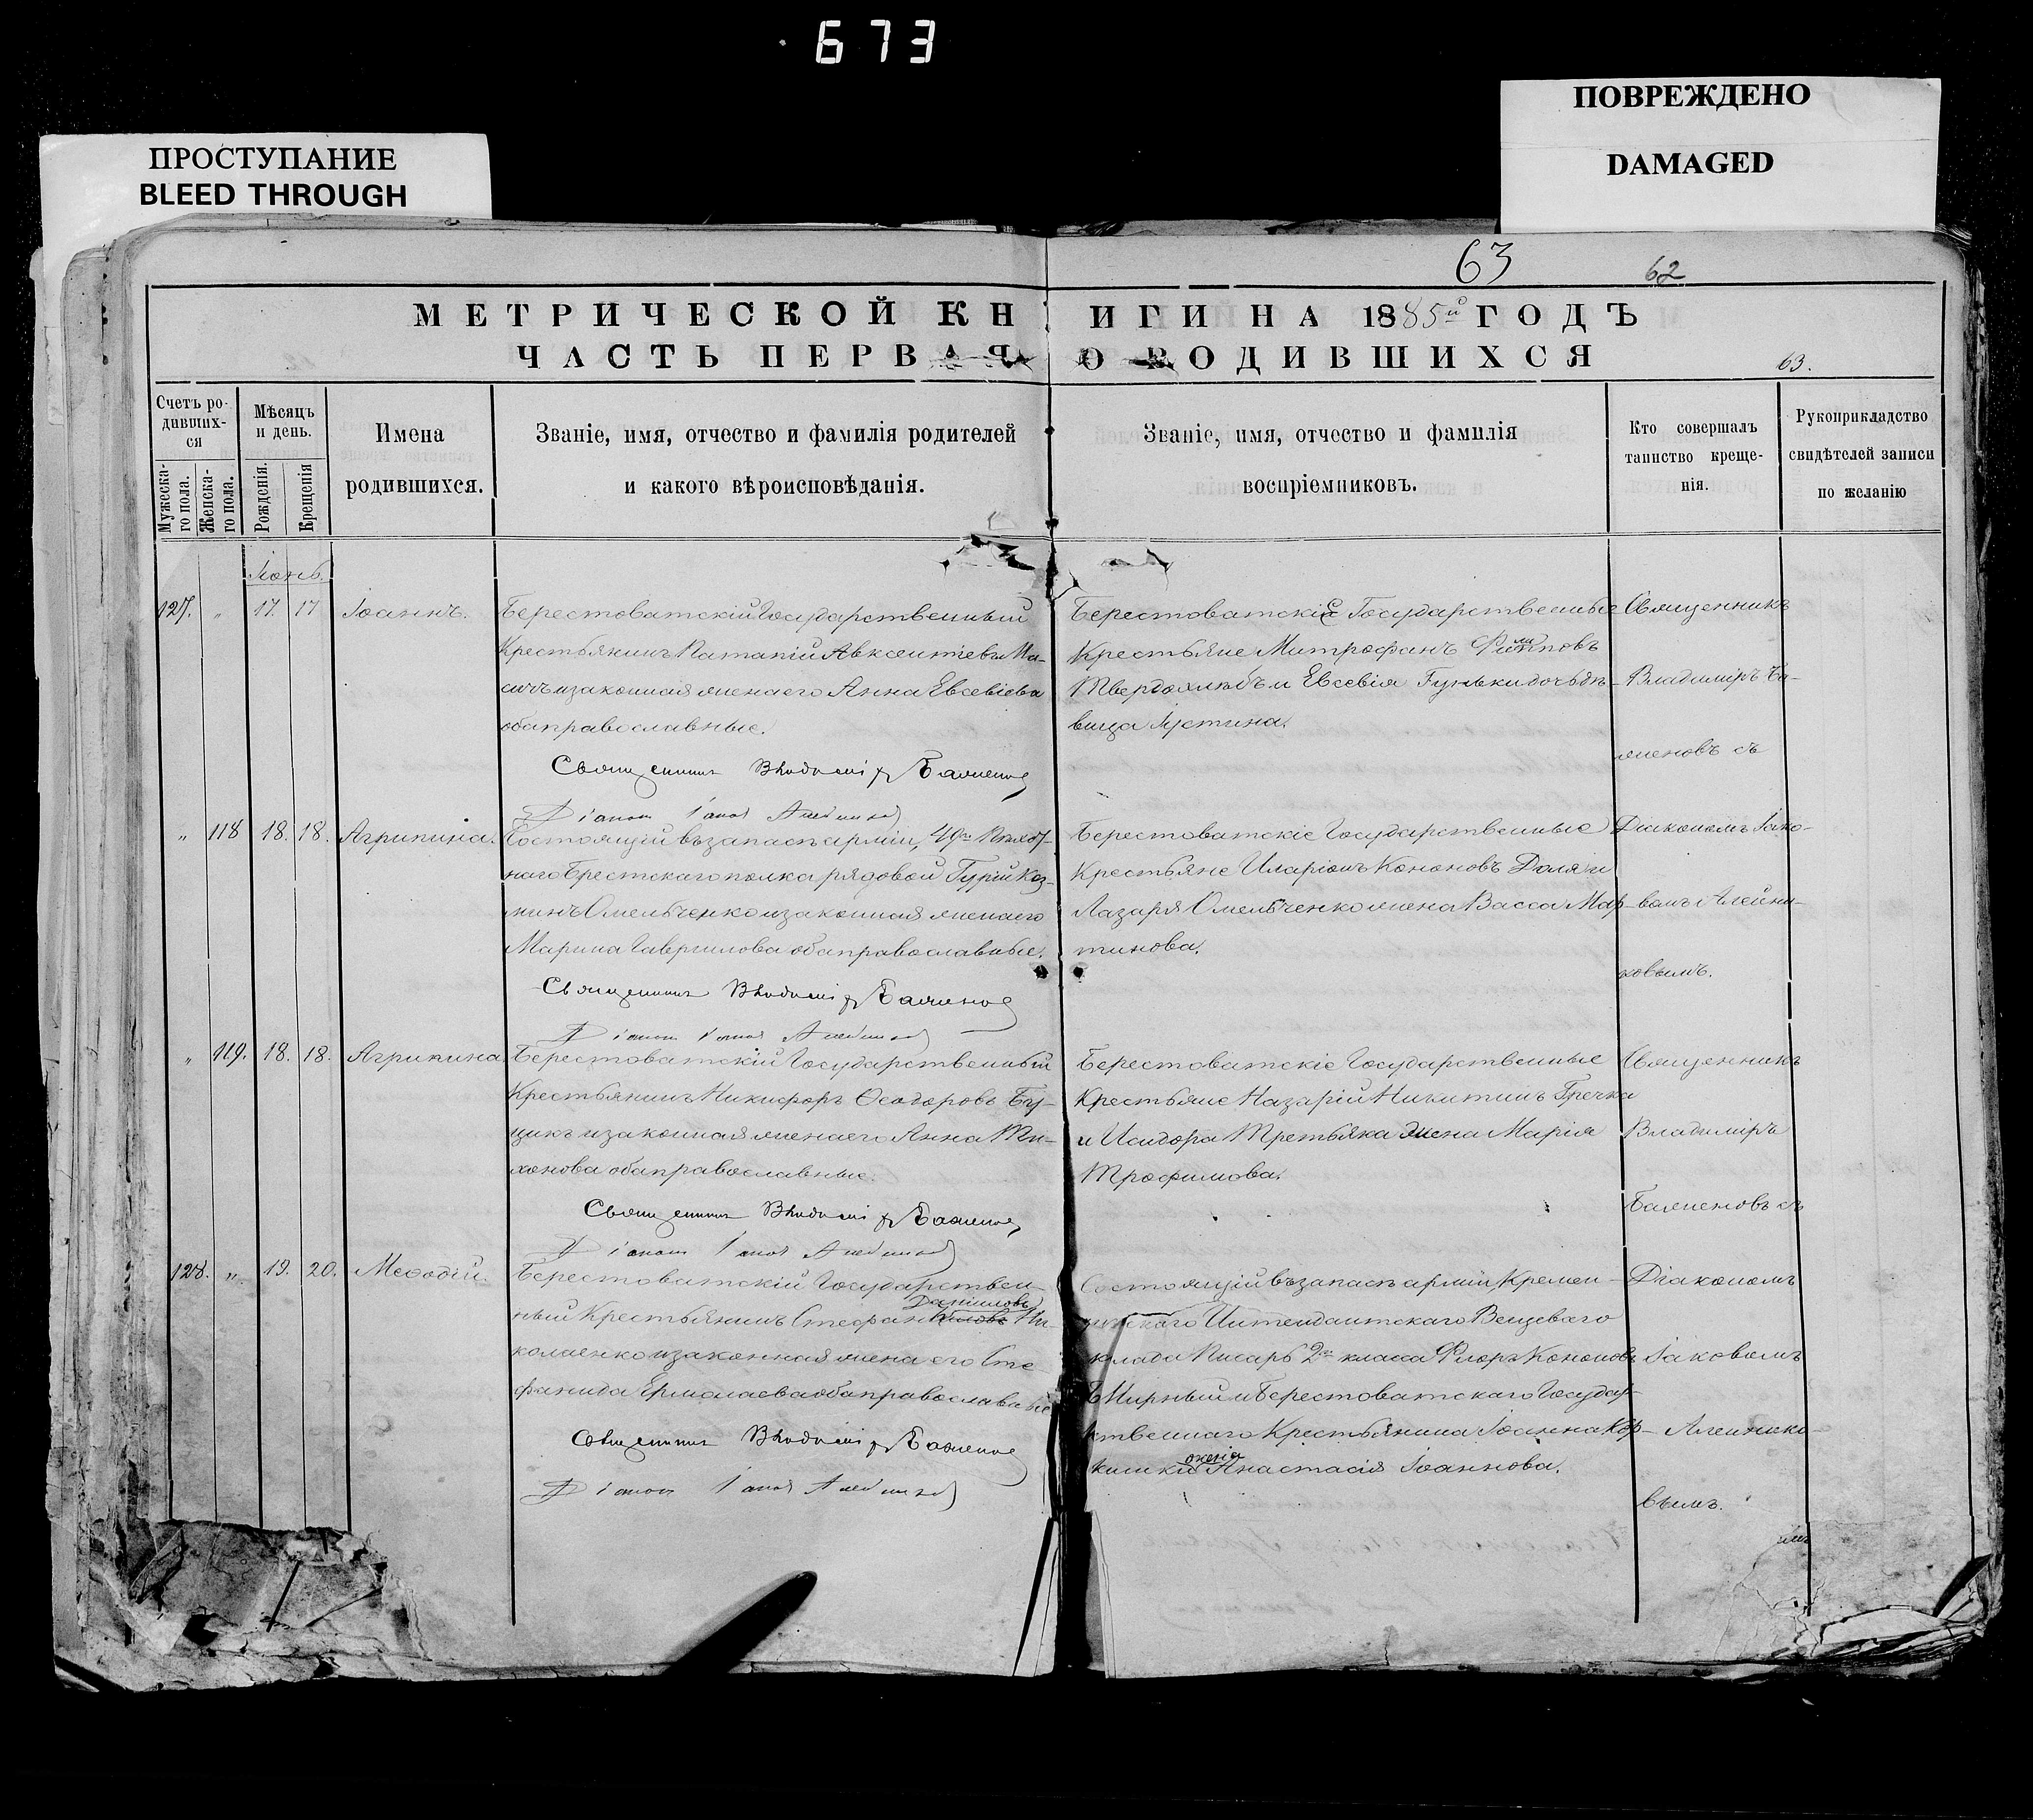 673
ПОВРЕЖДЕНО
DAMAGED
ПРОСТУПАНИЕ
BLEED THROUGH
63
62
МЕТРИЧЕСКОЙ КНИГИ НА 1885й ГОДЪ
ЧАСТЬ ПЕРВАЯ О РОДИВШИХСЯ
63.
Счетъ ро-
дивших-
ся
Мужеска-
го пола.
Женска-
го пола.
Мѣсяцъ
и день.
Рожденія.
Крещенія
Имена
родившихся.
Званіе, имя, отчество и фамилія родителей
и какого вѣроисповѣданія.
Званіе, имя, отчество и фамилія
воспріемниковъ.
Кто совершалъ
таинство креще-
нія.
Рукоприкладство
свидѣтелей записи
по желанію
Іюнь.
127. " 17. 17 Іоаннъ.
Берестоватскій Государственный
Крестьянинъ Патапій Авксентіевъ
и законная жена его Анна Евсевіева
оба православные.
Священникъ Владиміръ Баженов
Діаконъ Іаковъ Алейников
Берестоватскіе Государственные
Крестьяне Митрофанъ Филипповъ
Твердохлѣбъ и Евсевія Гуньки дочь дѣ-
вица Іустина.
Священникъ
Владиміръ Ба-
женовъ съ
" 118 18. 18. Агрипина.
Состоящій въ запасѣ арміи, 49го Пѣхот-
наго Брестскаго полка рядовой Гурій Коз-
минъ Омельченко и законная жена его
Марина Гавриилова оба православные.
Священникъ Владиміръ Баженов
Діаконъ Іаковъ Алейников
Берестоватскіе Государственные
Крестьяне Иларіонъ Кононовъ Доля и
Лазаря Омельченко жена Васса Мар-
тинова.
Діакономъ Іако-
вомъ Алейни-
ковымъ.
" 119. 18. 18. Агрипина
Берестоватскій Государственный
Крестьянинъ Никифоръ Ѳеодоровъ Бу-
цикъ и законная жена его Анна Ти-
хонова оба православные.
Священникъ Владиміръ Баженов
Діаконъ Іаковъ Алейников
Берестоватскіе Государственные
Крестьяне Назарій Никитинъ Гречка
и Исидора Третьяка жена Марія
Трофимова.
Священникъ
Владиміръ
Баженовъ съ
128. " 19. 20. Меѳодій.
Берестоватскій Государствен-
Даніиловъ
ный Крестьянинъ Стефанъ Ни-
колаенко и законная жена его Сте
фанида Ермолаева оба православные
Священникъ Владиміръ Баженов
Діаконъ Іаковъ Алейников
Состоящій въ запасѣ арміи, Кремен-
Интендантскаго Вещеваго
склада Писарь 2го класса Флоръ Кононовъ
Мирный и Берестоватскаго Государ-
ственнаго Крестьянина Іоанна Кор-
жена
Анастасія Іоаннова.
Діакономъ
Іаковомъ
Алейнико-
вымъ.